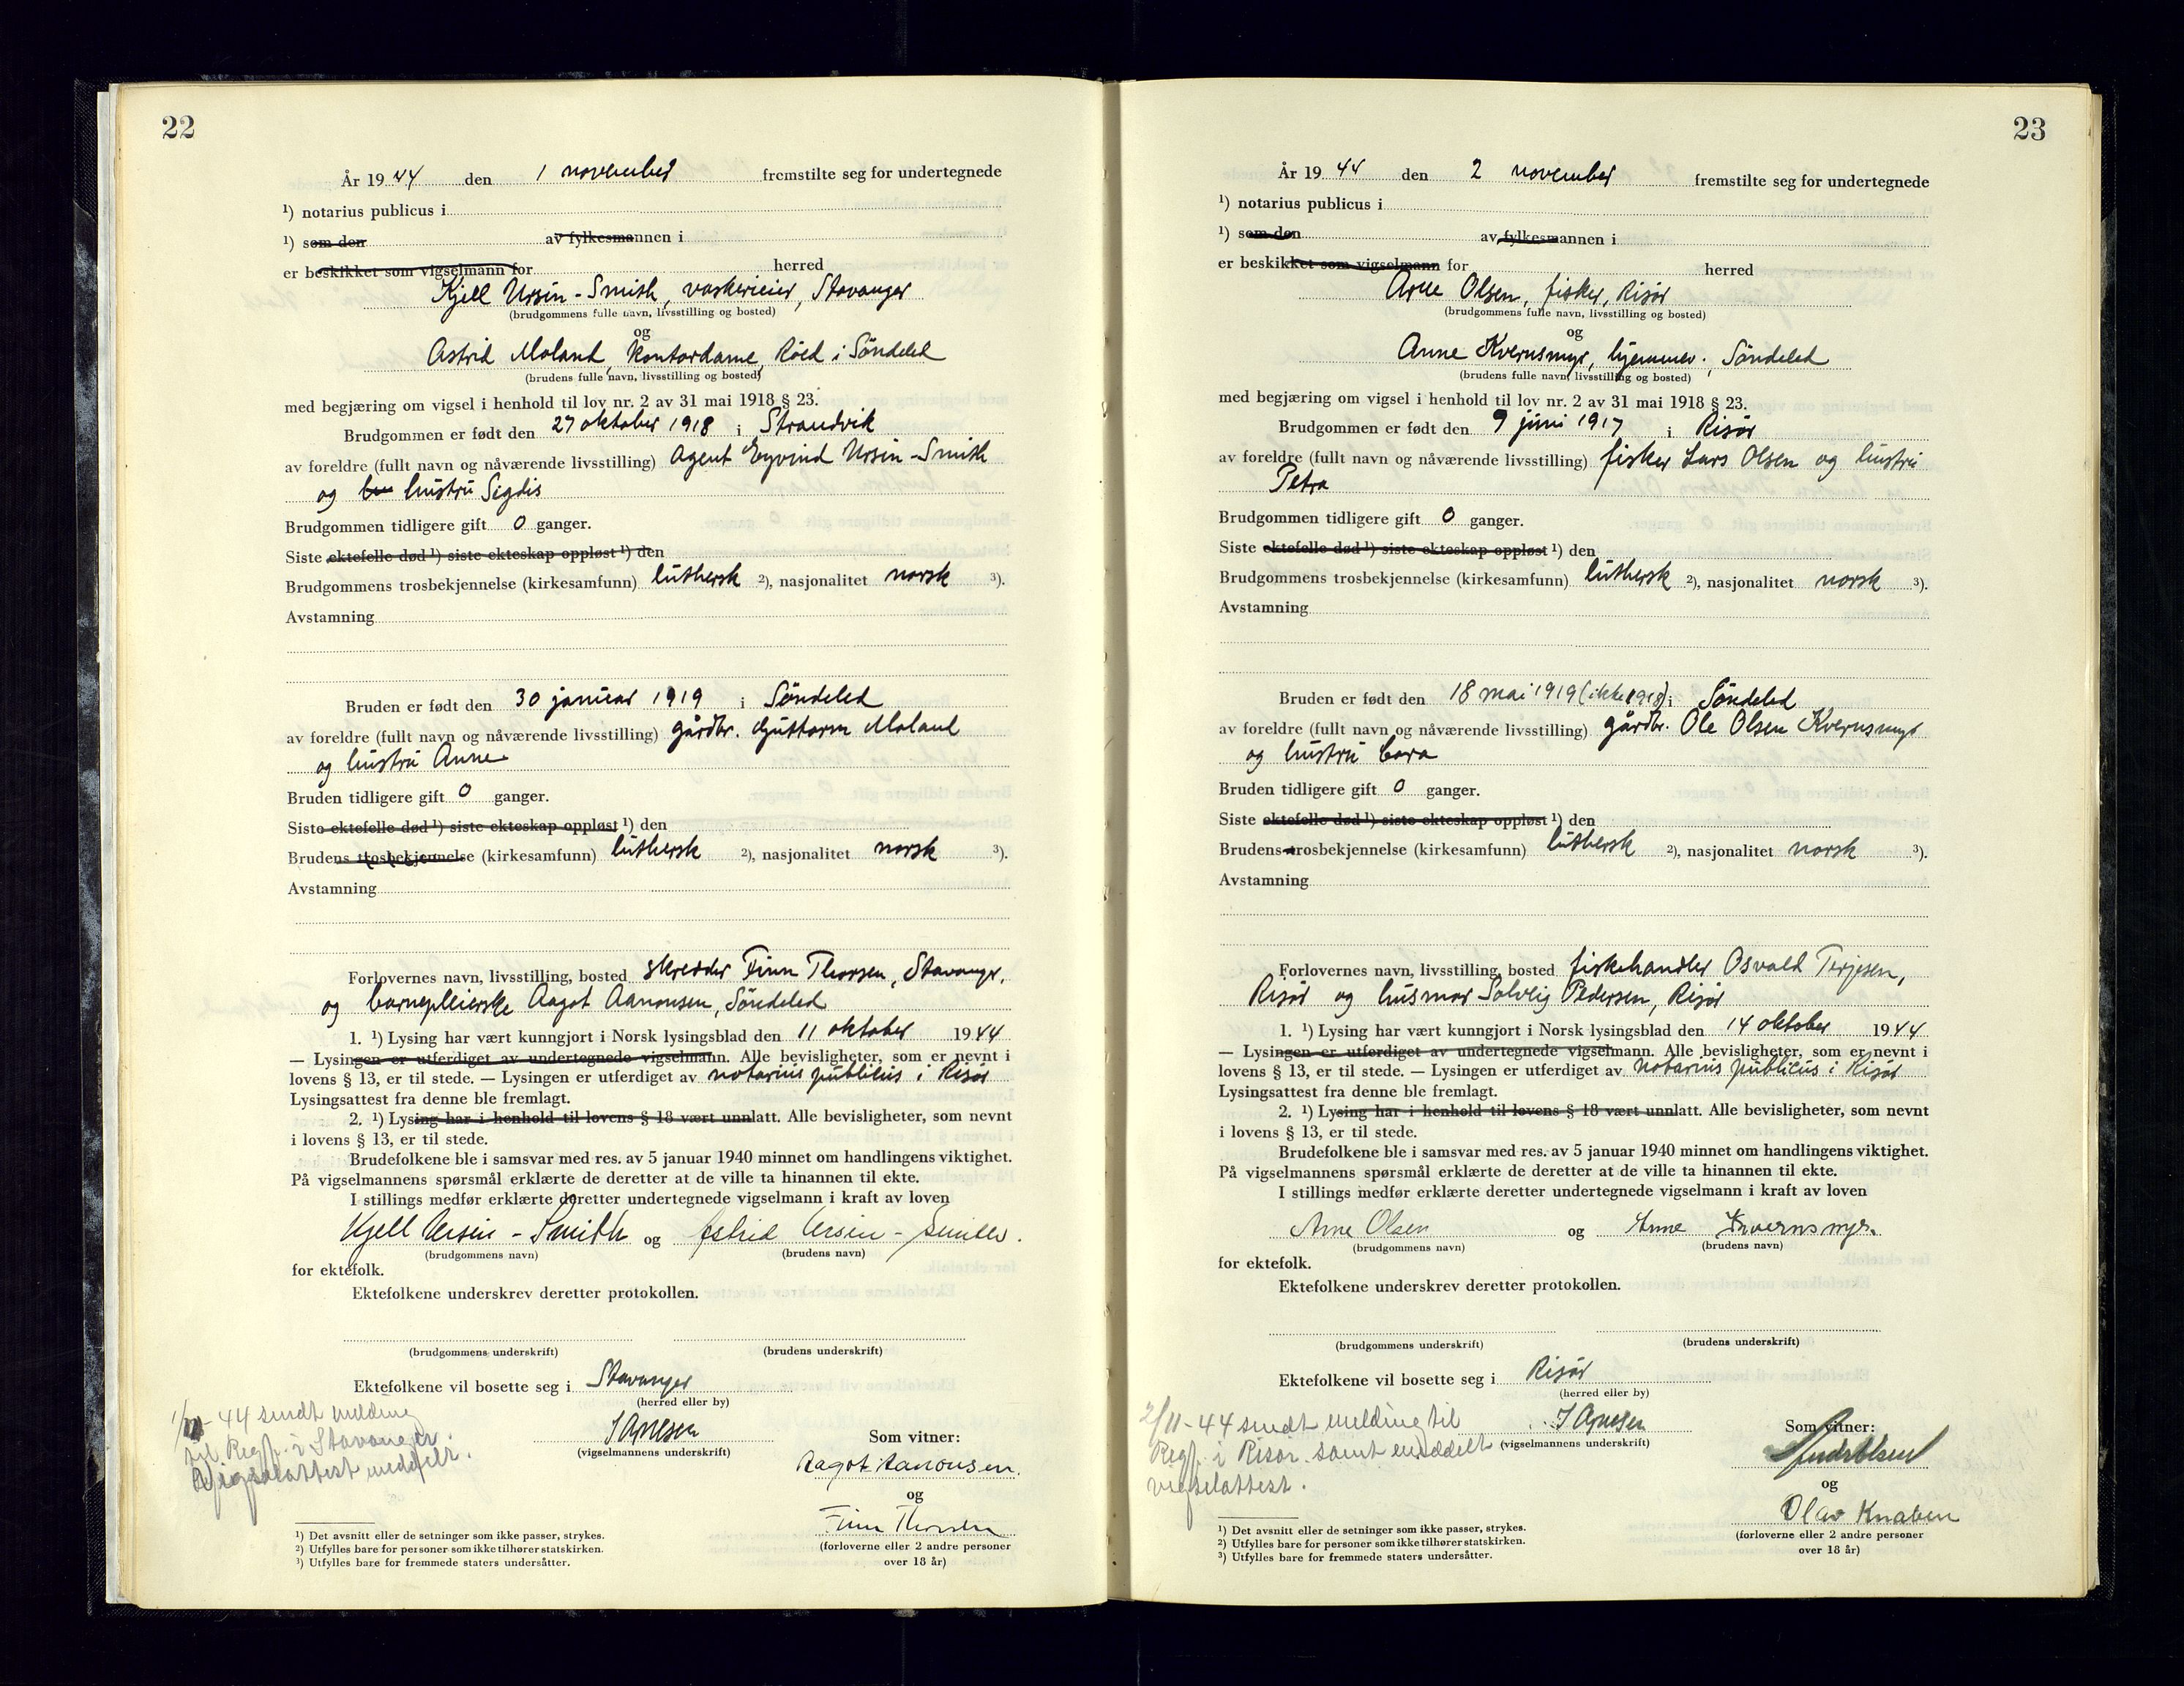 22
År 19 44 den 1 november fremstilte seg for undertegnede
¹) notarius publicus i
¹) som den av fylkesmannen i
er beskikket som vigselmann for herred
Kjell Ursin-Smith, vaskerieier, Stavanger
(brudgommens fulle navn, livsstilling og bosted)
og
Astrid Moland, kontordame, Röed i Söndeled
(brudens fulle navn, livsstilling og bosted)
med begjæring om vigsel i henhold til lov nr. 2 av 31 mai 1918 § 23.
Brudgommen er født den 27 oktober 1918 i Strandvik
av foreldre (fullt navn og nåværende livsstilling) Agent Eyvind Ursin-Smith
og hustru Sigdis
Brudgommen tidligere gift 0 ganger.
Siste ektefelle død ¹) siste ekteskap oppløst ¹) den
Brudgommens trosbekjennelse (kirkesamfunn) luthersk ²), nasjonalitet norsk ³).
Avstamning
Bruden er født den 30 januar 1919 i Söndeled
av foreldre (fullt navn og nåværende livsstilling) gårdbr. Guttorm Moland
og hustru Anne
Bruden tidligere gift 0 ganger.
Siste ektefelle død ¹) siste ekteskap oppløst ¹) den
Brudens trosbekjennelse (kirkesamfunn) luthersk ²), nasjonalitet norsk ³).
Avstamning
Forlovernes navn, livsstilling, bosted skredder Finn Thorsen, Stavanger,
og barnepleierske Aagot Aanonsen, Söndeled
1. ¹) Lysing har vært kunngjort i Norsk lysingsblad den 11 oktober 1944
— Lysingen er utferdiget av undertegnede vigselmann. Alle bevisligheter, som er nevnt i
lovens § 13, er til stede. — Lysingen er utferdiget av notarius publicus i Risör
Lysingsattest fra denne ble fremlagt.
2. ¹) Lysing har i henhold til lovens § 18 vært unnlatt. Alle bevisligheter, som nevnt
i lovens § 13, er til stede.
Brudefolkene ble i samsvar med res. av 5 januar 1940 minnet om handlingens viktighet.
På vigselmannens spørsmål erklærte de deretter at de ville ta hinannen til ekte.
I stillings medfør erklærte deretter undertegnede vigselmann i kraft av loven
Kjell Ursin-Smith og Astrid Ursin-Smith.
(brudgommens navn) (brudens navn)
for ektefolk.
Ektefolkene underskrev deretter protokollen.
(brudgommens underskrift) (brudens underskrift)
Ektefolkene vil bosette seg i Stavanger
(herred eller by)
1/11-44 sendt melding
til Regf. i Stavanger.
Vigselattest meddelt.
(vigselmannens underskrift)
Som vitner:
Aagot Aanonsen.
og
Finn Thorsen
(forloverne eller 2 andre personer
over 18 år)
¹) Det avsnitt eller de setninger som ikke passer, strykes.
²) Utfylles bare for personer som ikke tilhører statskirken.
³) Utfylles bare for fremmede staters undersåtter.
23
År 19 44 den 2 november fremstilte seg for undertegnede
¹) notarius publicus i
¹) som den av fylkesmannen i
er beskikket som vigselmann for herred
Arne Olsen, fisker, Risör
(brudgommens fulle navn, livsstilling og bosted)
og
Anne Kvernsmyr, hjemmev., Söndeled
(brudens fulle navn, livsstilling og bosted)
med begjæring om vigsel i henhold til lov nr. 2 av 31 mai 1918 § 23.
Brudgommen er født den 9 juni 1917 i Risör
av foreldre (fullt navn og nåværende livsstilling) fisker Lars Olsen og hustru
Petra
Brudgommen tidligere gift 0 ganger.
Siste ektefelle død ¹) siste ekteskap oppløst ¹) den
Brudgommens trosbekjennelse (kirkesamfunn) luthersk ²), nasjonalitet norsk ³).
Avstamning
Bruden er født den 18 mai 1919 (ikke 1918) i Söndeled
av foreldre (fullt navn og nåværende livsstilling) gårdbr. Ole Olsen Kvernsmyr
og hustru Cora
Bruden tidligere gift 0 ganger.
Siste ektefelle død ¹) siste ekteskap oppløst ¹) den
Brudens trosbekjennelse (kirkesamfunn) luthersk ²), nasjonalitet norsk ³).
Avstamning
Forlovernes navn, livsstilling, bosted fiskehandler Osvald Terjesen,
Risör og husmor Solveig Pedersen, Risör
1. ¹) Lysing har vært kunngjort i Norsk lysingsblad den 14 oktober 1944
— Lysingen er utferdiget av undertegnede vigselmann. Alle bevisligheter, som er nevnt i
lovens § 13, er til stede. — Lysingen er utferdiget av notarius publicus i Risör
Lysingsattest fra denne ble fremlagt.
2. ¹) Lysing har i henhold til lovens § 18 vært unnlatt. Alle bevisligheter, som nevnt
i lovens § 13, er til stede.
Brudefolkene ble i samsvar med res. av 5 januar 1940 minnet om handlingens viktighet.
På vigselmannens spørsmål erklærte de deretter at de ville ta hinannen til ekte.
I stillings medfør erklærte deretter undertegnede vigselmann i kraft av loven
Arne Olsen og Anne Kvernsmyr.
(brudgommens navn) (brudens navn)
for ektefolk.
Ektefolkene underskrev deretter protokollen.
(brudgommens underskrift) (brudens underskrift)
Ektefolkene vil bosette seg i Risör
(herred eller by)
2/11-44 sendt melding til
Regf. i Risör samt meddelt
vigselattest.
(vigselmannens underskrift)
Som vitner:
og
Olav Knaben
(forloverne eller 2 andre personer
over 18 år)
¹) Det avsnitt eller de setninger som ikke passer, strykes.
²) Utfylles bare for personer som ikke tilhører statskirken.
³) Utfylles bare for fremmede staters undersåtter.